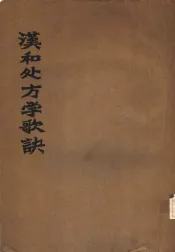 漢和处方学歌訣